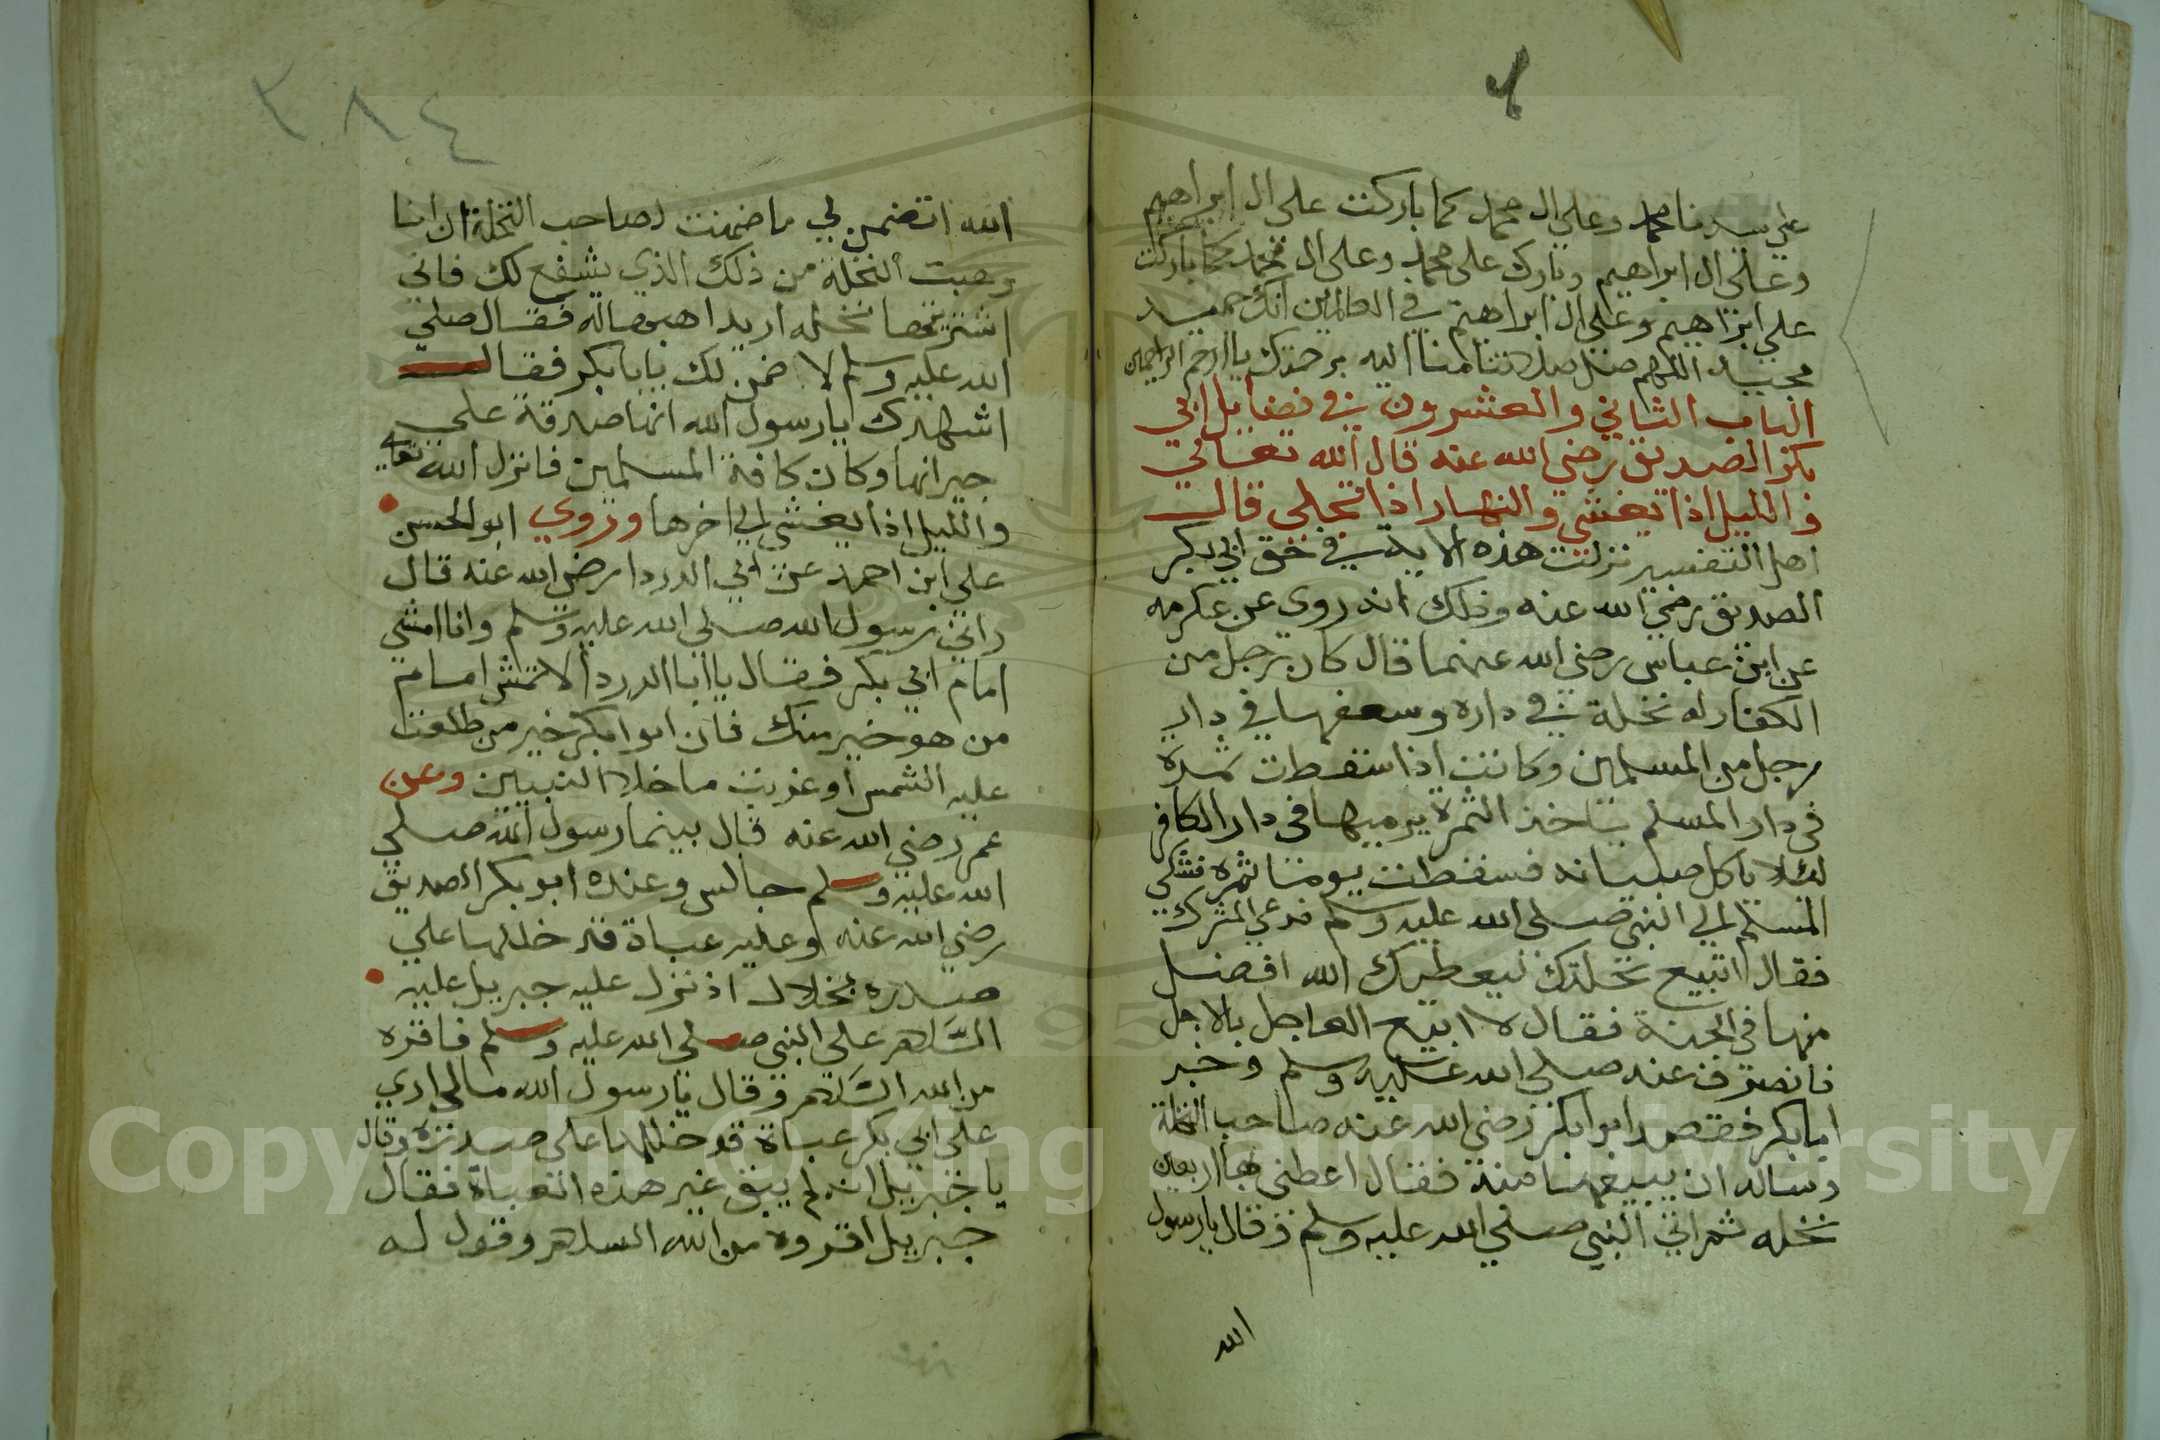 على سيدنا محمد وعلى ال محمد كما باركت على ال ابراهيم
وعلى ال ابراهيم وبارك على محمد وعلى ال محمد كما باركت
على ابراهيم وعلى ال ابراهيم في العالمين انك حميد
مجيد اللهم صل صلاتنا اليه برحمتك يا ارحم الراحمين
الباب الثاني والعشرون في فضايل ابي
بكر الصديق رضي الله عنه قال الله تعالي
والليل اذا يغشي والنهار اذا تجلى قال
اهل التفسير نزلت هذه الاية في حق ابي بكر
الصديق رضي الله عنه وذلك انه روى عن عكرمه
عن ابن عباس رضي الله عنهما قال كان رجل من
الكفار له نخلة في داره وسعفها في دار
رجل من المسلمين وكانت اذا سقطت ثمرة
في دار المسلم ياخذ الثمرة يرميها في دار الكافر
لئلا ياكل صبيانه فسقطت يوما ثمره فشكي
المسلم الي النبي صلى الله عليه وسلم فدعي المشرك
فقال اتبيع نخلتك ليعطيك الله افضل
منها في الجنة فقال لا ابيع العاجل بالاجل
فانصرف عنه صلي الله عليه وسلم وخبر
ابا بكر فقصد ابو ابكر رضي الله عنه صاحب النخلة
وساله ان يبيعها منه فقال اعطني بها اربعين
نخله ثم اتي النبي صلي الله عليه وسلم وقال يا رسول
الله
٣٨٤
الله اتضمن لي ما ضمنت لصاحب النخلة ان انا
وهبت النخلة من ذلك الذي يشفع لك فاني
اشتريتها نخله اريد اهبها له فقال صلي
الله عليه وسلم لا ضمن لك يابا بكر فقال
اشهدك يا رسول الله انها صدقة علي
جيرانها وكان كافة المسلمين فانزل الله تعالي
والليل اذا يغشي الي اخرها وروي ابو الحسن
علي ابن احمد عن ابي الدردا رضي الله عنه قال
راني رسول الله صلي الله عليه وسلم وانا امشي
امام ابي بكر فقال يا ابا الدردا لا تمش امام
من هو خير منك فان ابو ابكر خير من طلعت
عليه الشمس او غربت ما خلا النبيين وعن
عمر رضي الله عنه قال بينما رسول الله صلي
الله عليه وسلم جالس وعنده ابو بكر الصديق
رضي الله عنه وعليه عباة قد خللها علي
صدره بخلال اذ نزل عليه جبريل عليه
السلام على النبي صلي الله عليه وسلم فاقره
من الله السلام وقال يا رسول الله مالي اري
على ابي بكر عباة قد خللها على صدره وقال
يا جبريل انه لم يبق غير هذه العباة فقال
جبريل اقروه من الله السلام وقول له
Copyright © King Saud University